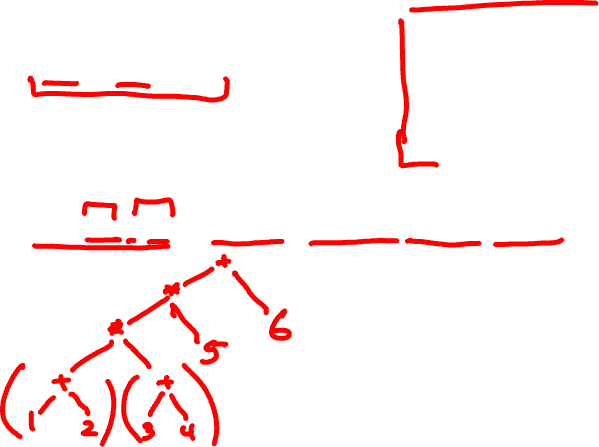 +
*
6
*
5
( + ) ( + )
1 2 3 4